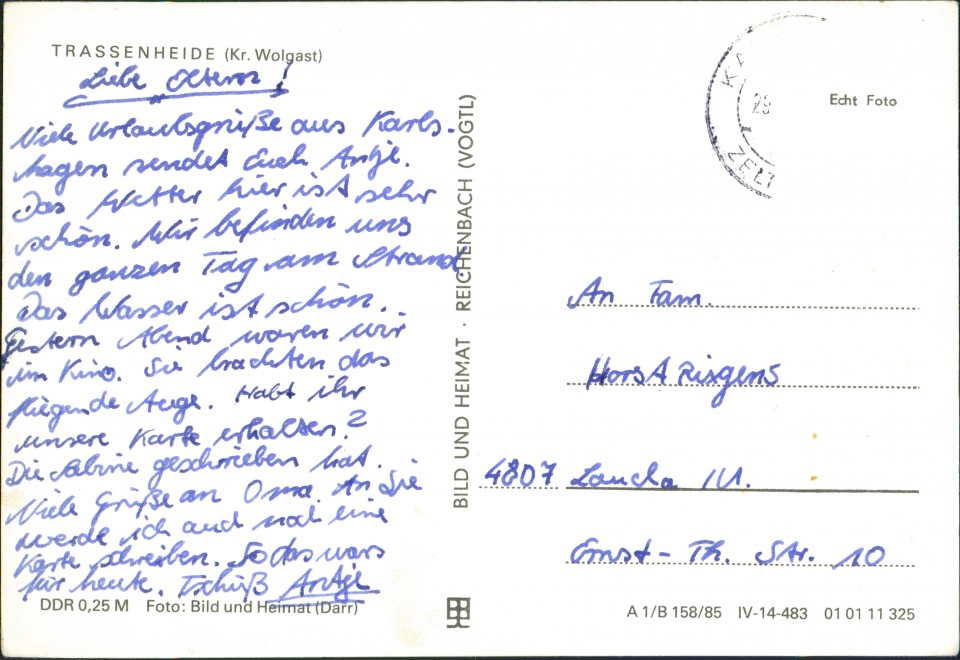 TRASSENHEIDE (Kr. Wolgast)
Liebe Eltern!
Viele Urlaubsgrüße aus Karls-
hagen sendet Euch Antje.
Das Wetter hier ist sehr
schön. Wir befinden uns
den ganzen Tag am Strand
Das Wasser ist schön.
Gestern Abend waren wir
im Kino. Sie brachten das
fliegende Auge. Habt ihr
unsere Karte erhalten?
Die Sabine geschrieben hat.
Viele Grüße an Oma. An Sie
werde ich auch noch eine
Karte schreiben. So das wars
für heute. Tschüß Antje
DDR 0,25 M Foto: Bild und Heimat (Darr)
BILD UND HEIMAT · REICHENBACH (VOGTL)
29
ZELT
Echt Foto
An Fam.
Horst
4807 Laucha /U.
Ernst-Th. Str. 10
A 1/B 158/85 IV-14-483 01 01 11 325